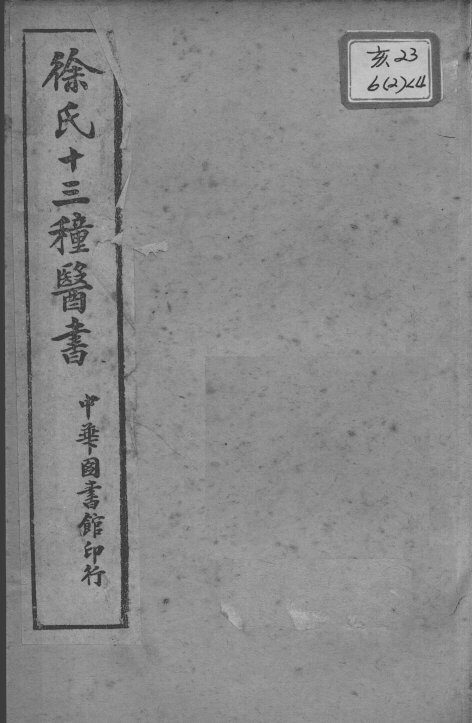 徐氏十三種醫書
中華圖書館印行
亥23
6(2)<4